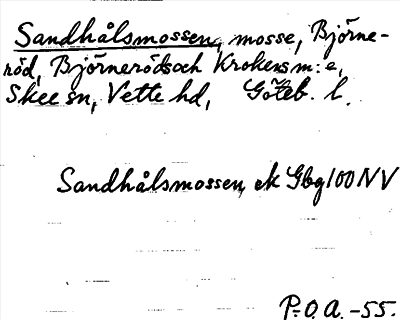 Sandhålsmossen, mosse, Björne-
röd, Björneröds och Krokens m:e,
Skee sn, Vette hd, Göteb. l.
Sandhålsmossen, ek Gbg 100 NV
P.O.A. -55.